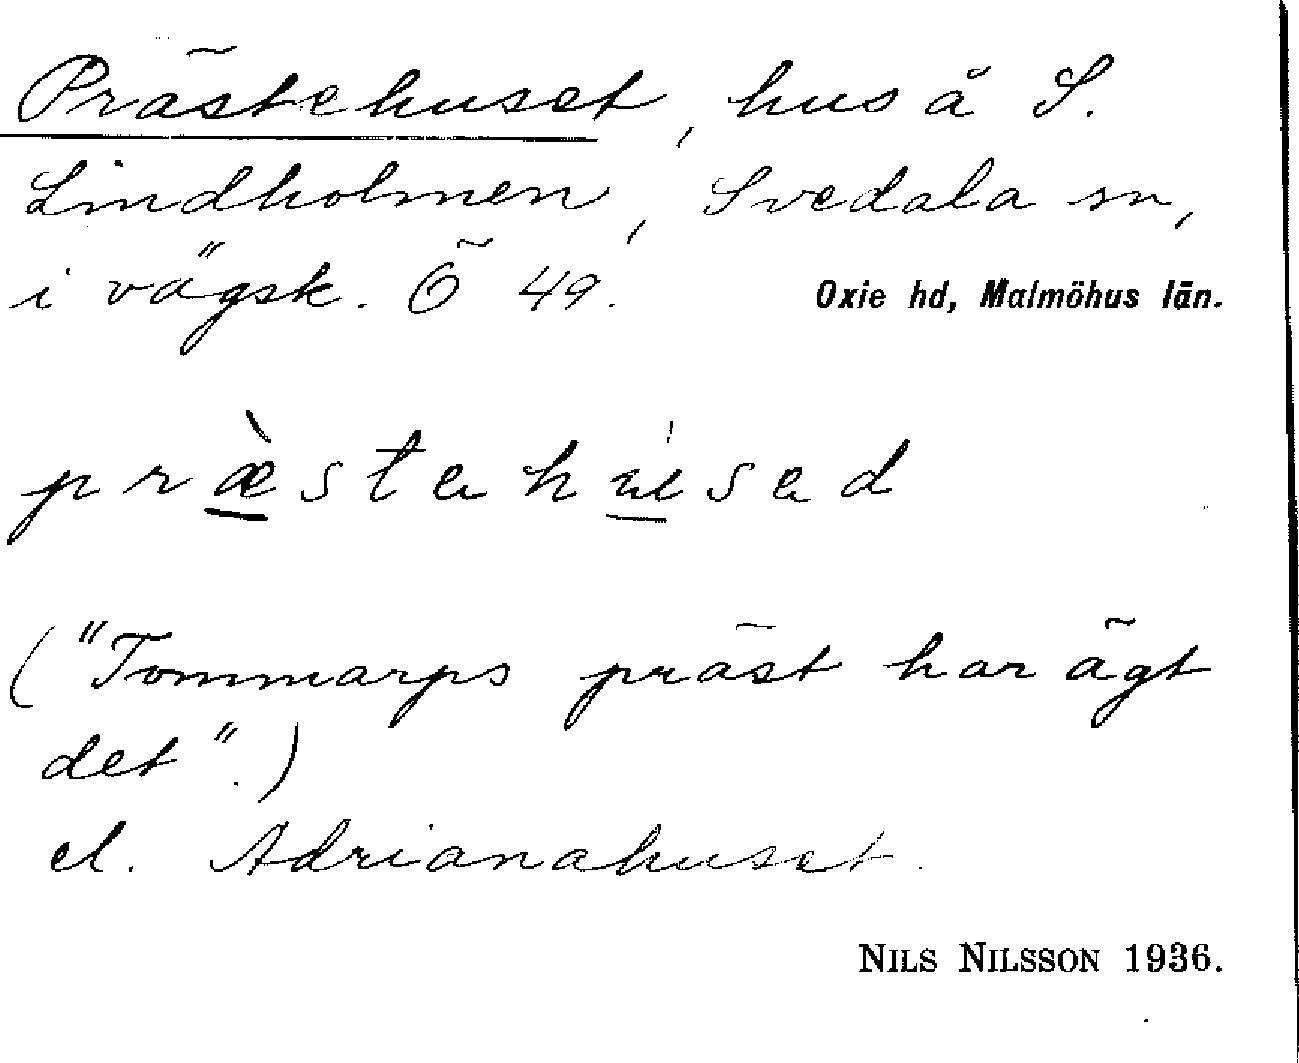 Prästehuset, hus å S.
Lindholmen, Svedala sn,
i vägsk. Ö 49. Oxie hd, Malmöhus län.
præ̀stahúsad
("Tommarps präst har ägt
det".)
el. Adrianahuset.
NILS NILSSON 1936.